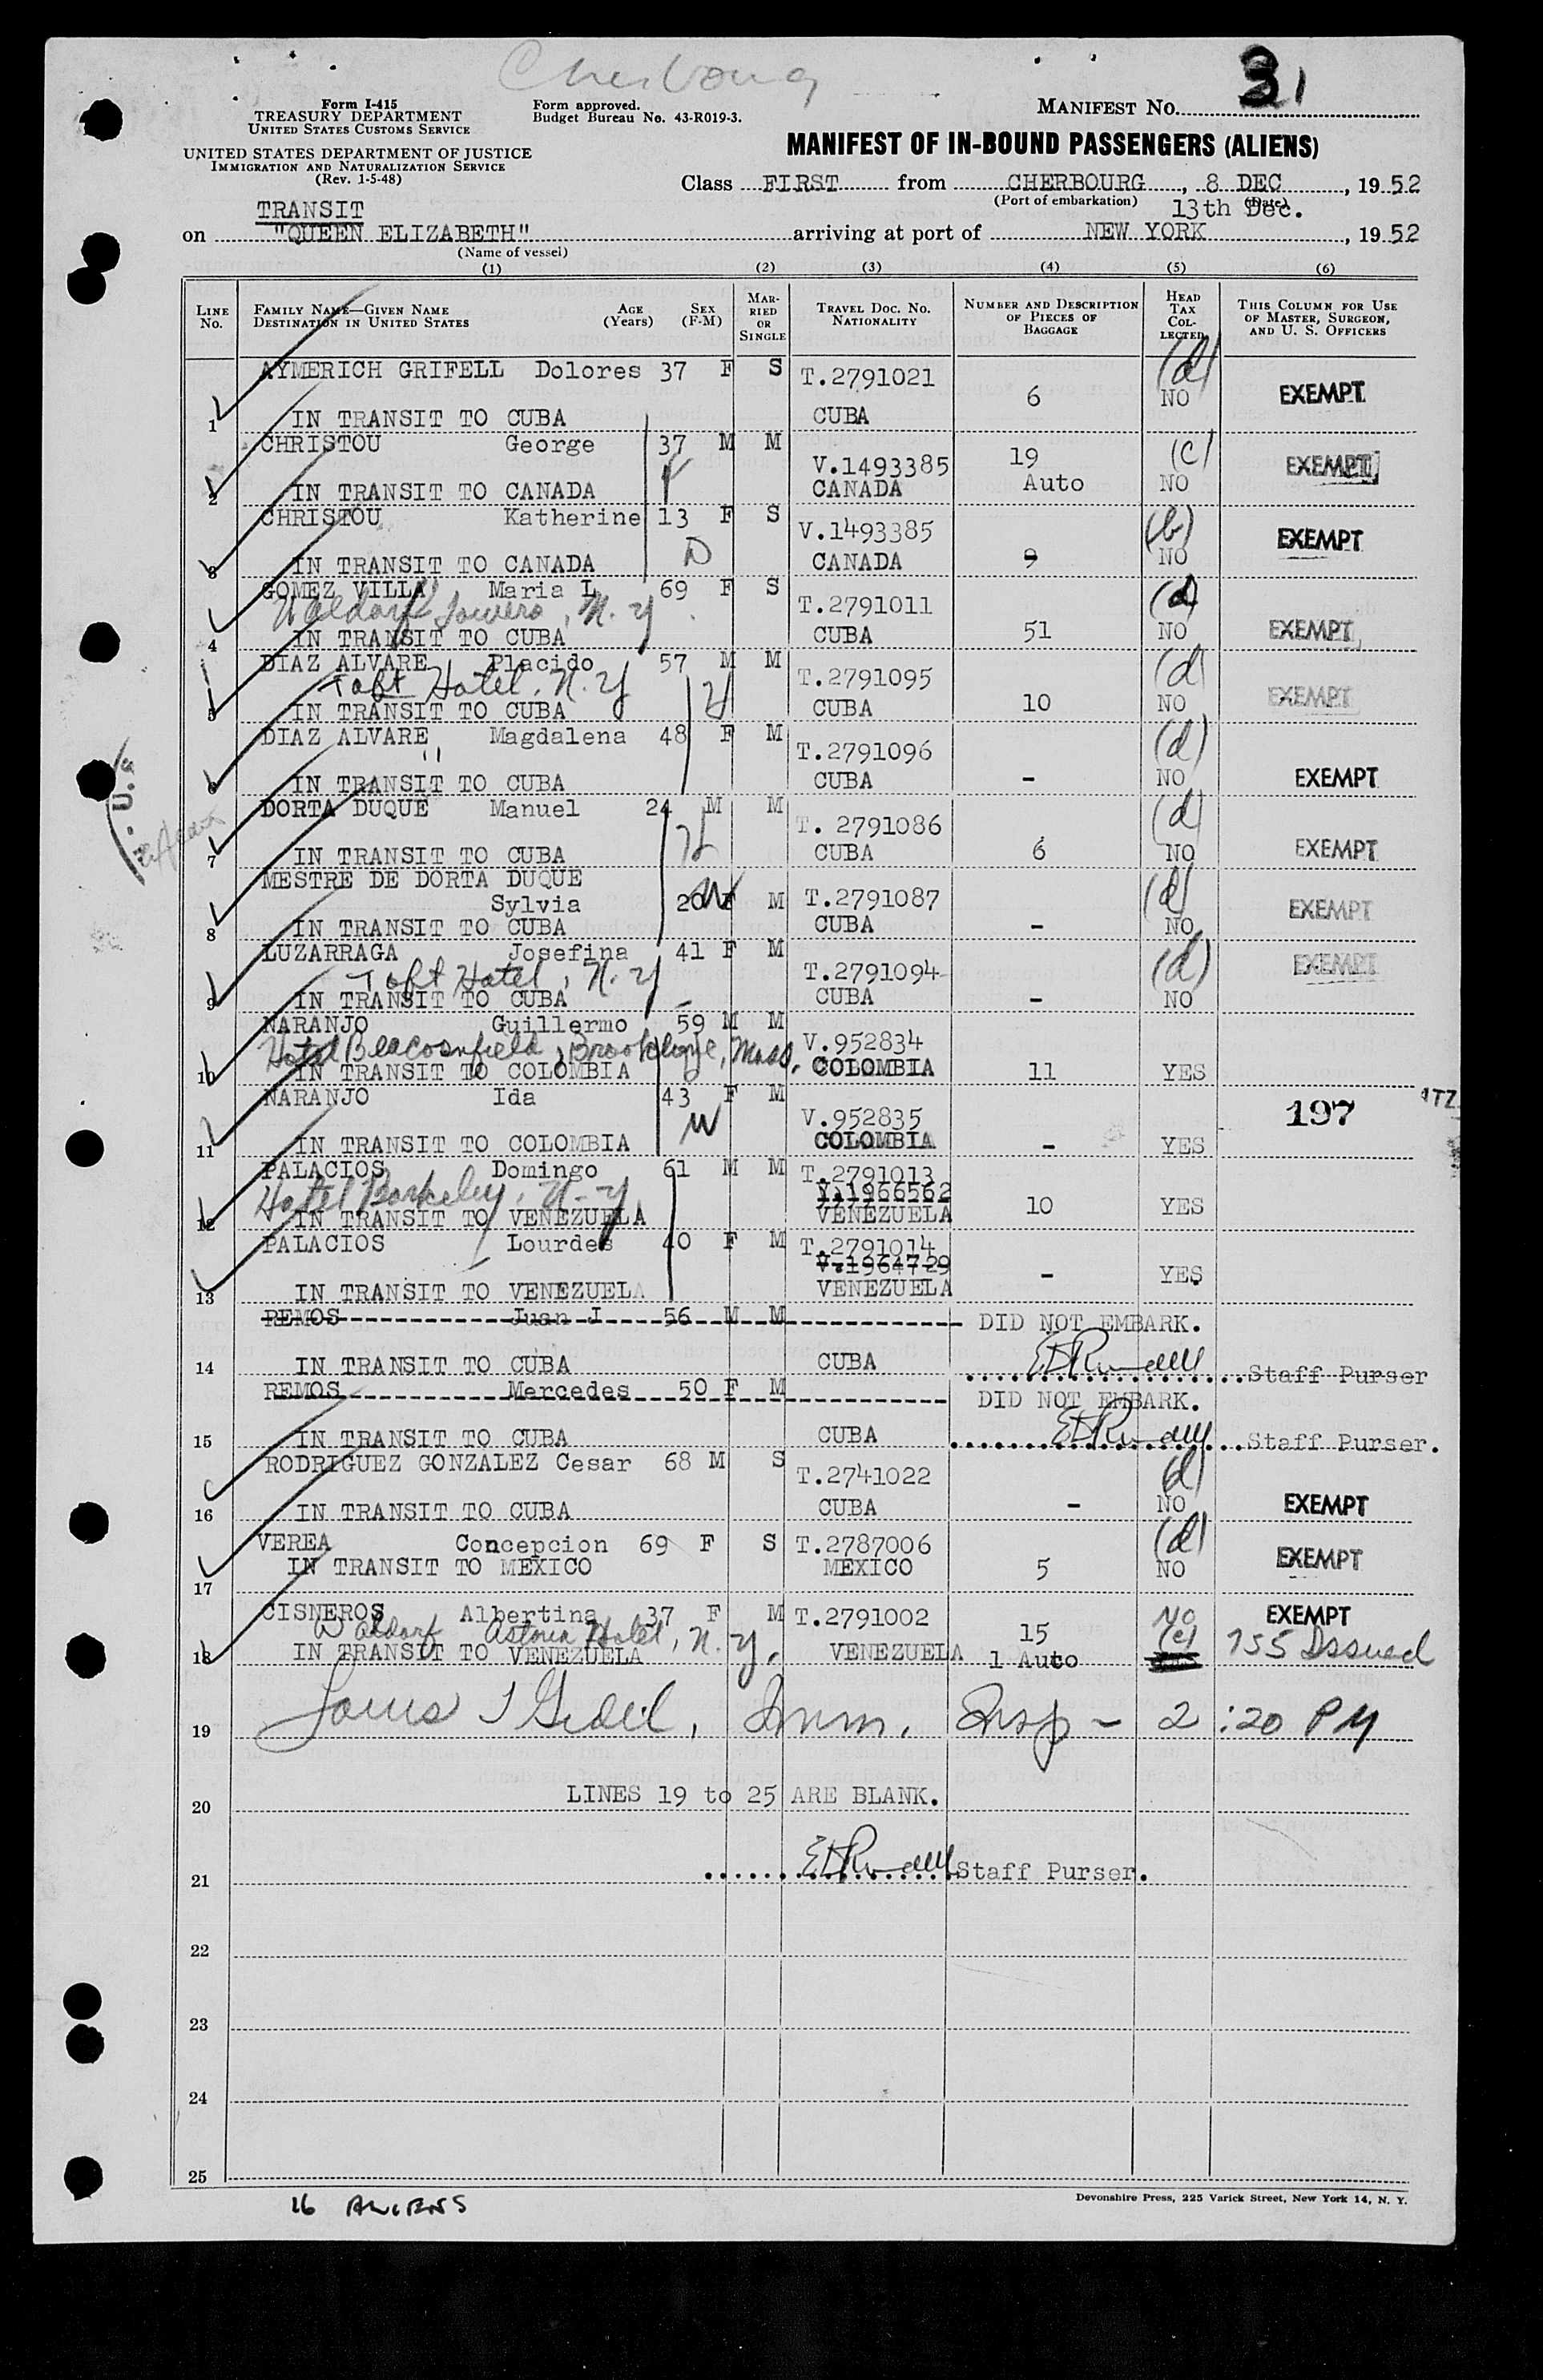 Cherbourg
31
Form I-415
TREASURY DEPARTMENT
UNITED STATES CUSTOMS SERVICE
Form approved.
Budget Bureau No. 43-R019-3.
MANIFEST No.
UNITED STATES DEPARTMENT OF JUSTICE
IMMIGRATION AND NATURALIZATION SERVICE
(Rev. 1-5-48)
MANIFEST OF IN-BOUND PASSENGERS (ALIENS)
Class FIRST from CHERBOURG, 8 DEC, 1952
(Port of embarkation) (Date)
TRANSIT 13th Dec.
on "QUEEN ELIZABETH" arriving at port of NEW YORK, 1952
(Name of vessel)
(1) (2) (3) (4) (5) (6)
LINE No. FAMILY NAME—GIVEN NAME DESTINATION IN UNITED STATES AGE (Years) SEX (F-M) MARRIED OR SINGLE TRAVEL DOC. No. NATIONALITY NUMBER AND DESCRIPTION OF PIECES OF BAGGAGE HEAD TAX COLLECTED THIS COLUMN FOR USE OF MASTER, SURGEON, AND U. S. OFFICERS
AYMERICH GRIFELL Dolores 37 F S T.2791021 (d)
1 IN TRANSIT TO CUBA CUBA 6 NO EXEMPT
CHRISTOU George 37 M M V.1493385 19 (c)
2 IN TRANSIT TO CANADA CANADA Auto NO EXEMPT
CHRISTOU Katherine 13 F S V.1493385 (b)
3 IN TRANSIT TO CANADA D CANADA 9 NO EXEMPT
GOMEZ VILLA Maria L 69 F S T.2791011 (d)
Waldorf Towers, N.Y.
4 IN TRANSIT TO CUBA CUBA 51 NO EXEMPT
DIAZ ALVARE Placido 57 M M T.2791095 (d)
Taft Hotel, N.Y
5 IN TRANSIT TO CUBA CUBA 10 NO EXEMPT
DIAZ ALVARE Magdalena 48 F M T.2791096 (d)
"
6 IN TRANSIT TO CUBA CUBA - NO EXEMPT
DORTA DUQUE Manuel 24 M M T. 2791086 (d)
7 IN TRANSIT TO CUBA H CUBA 6 NO EXEMPT
MESTRE DE DORTA DUQUE
Sylvia 20 F W M T.2791087 (d)
8 IN TRANSIT TO CUBA CUBA - NO EXEMPT
LUZARRAGA Josefina 41 F M T.2791094 (d)
Taft Hotel, N.Y
9 IN TRANSIT TO CUBA CUBA - NO EXEMPT
NARANJO Guillermo 59 M M V.952834
Hotel Beaconsfield, Brookline, Mass.
10 IN TRANSIT TO COLOMBIA COLOMBIA 11 YES
NARANJO Ida 43 F M V.952835 197
11 IN TRANSIT TO COLOMBIA W COLOMBIA - YES
PALACIOS Domingo 61 M M T.2791013
Hotel Berkeley, N.Y V.1966562
12 IN TRANSIT TO VENEZUELA VENEZUELA 10 YES
PALACIOS Lourdes 40 F M T.2791014
V.1964729
13 IN TRANSIT TO VENEZUELA VENEZUELA - YES
REMOS Juan J 56 M M DID NOT EMBARK.
14 IN TRANSIT TO CUBA CUBA Staff Purser
REMOS Mercedes 50 F M DID NOT EMBARK.
15 IN TRANSIT TO CUBA CUBA Staff Purser.
RODRIGUEZ GONZALEZ Cesar 68 M S T.2741022 (d)
16 IN TRANSIT TO CUBA CUBA - NO EXEMPT
VEREA Concepcion 69 F S T.2787006 (d)
IN TRANSIT TO MEXICO MEXICO 5 NO EXEMPT
17
CISNEROS Albertina 37 F M T.2791002 15 NO EXEMPT
Waldorf Astoria Hotel, N.Y. (c) 755 Issued
18 IN TRANSIT TO VENEZUELA VENEZUELA 1 Auto
19 Louis Imm. Insp - 2:20 PM
LINES 19 to 25 ARE BLANK.
20
Staff Purser.
21
22
23
24
25
16 ALIENS
Devonshire Press, 225 Varick Street, New York 14, N. Y.